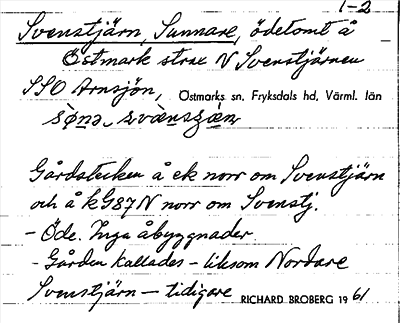 1-2
Svenstjärn, Sunnare, ödetomt å
Östmark strax N Svenstjärnen
SSO Arnsjön, Östmarks sn. Fryksdals hd, Värml. län
Gårdstecken å ek norr om Svenstjärn
och å kG87N norr om Svenstj.
- Öde. Inga åbyggnader
- Gården kallades - liksom Nordare
Svenstjärn - tidigare RICHARD BROBERG 1961